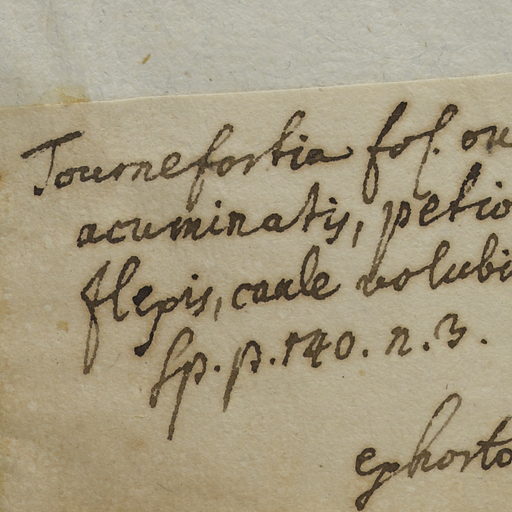 Tournefortia fol. ov
acuminatis, petio
flexis, caule volubi
Sp. p. 140. n. 3.
ex horto